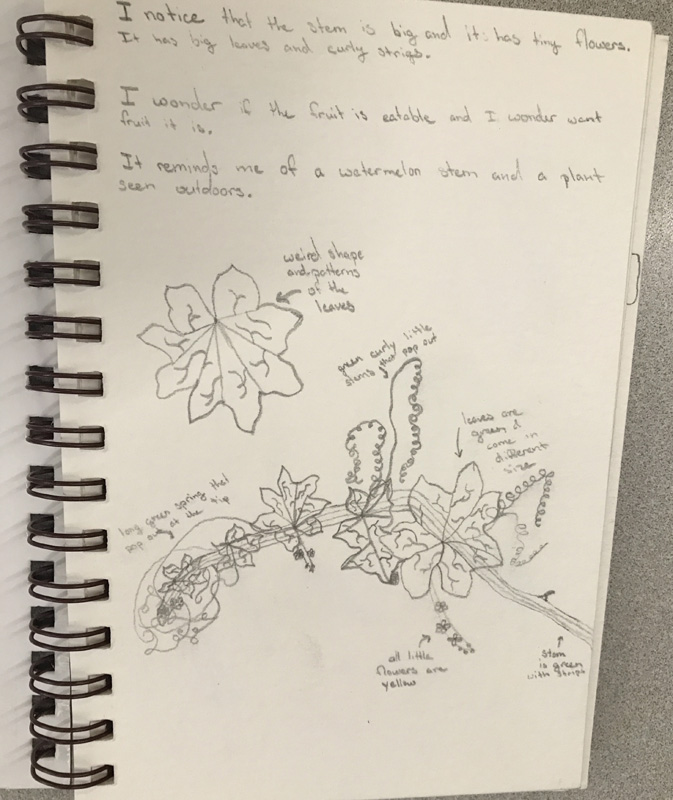 I notice that the stem is big and it has tiny flowers.
It has big leaves and curly strigs.
I wonder if the fruit is eatable and I wonder want
fruit it is.
It reminds me of a watermelon stem and a plant
seen outdoors.
weird shape
and patterns
of the
leaves
green curly little
stems that pop out
leaves are
green &
come in
different
size
long green spring that
pop out at the tip
all little
flowers are
yellow
stem
is green
with strips